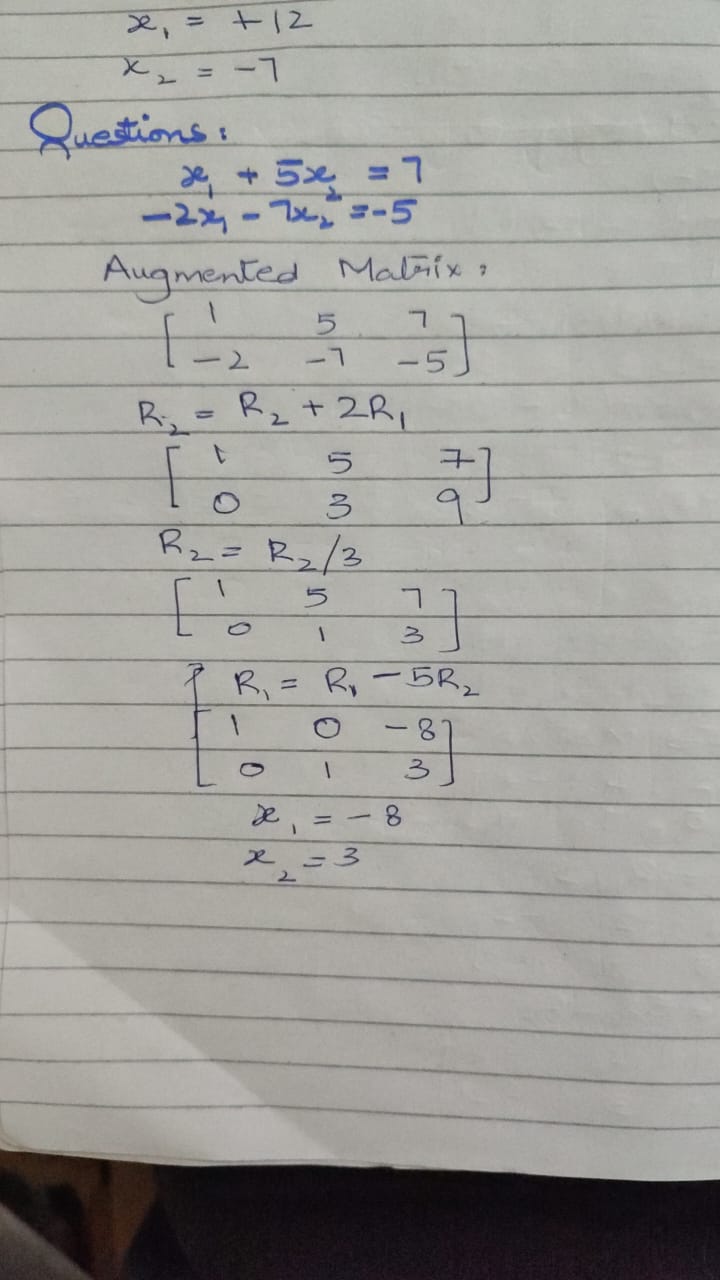 x₁ = +12
x₂ = -7
Questions:
x₁ + 5x₂ = 7
-2x₁ - 7x₂ = -5
Augmented Matrix:
[ 1 5 7 ]
[ -2 -7 -5 ]
R₂ = R₂ + 2R₁
[ 1 5 7 ]
[ 0 3 9 ]
R₂ = R₂/3
[ 1 5 7 ]
[ 0 1 3 ]
R₁ = R₁ - 5R₂
[ 1 0 -8 ]
[ 0 1 3 ]
x₁ = -8
x₂ = 3